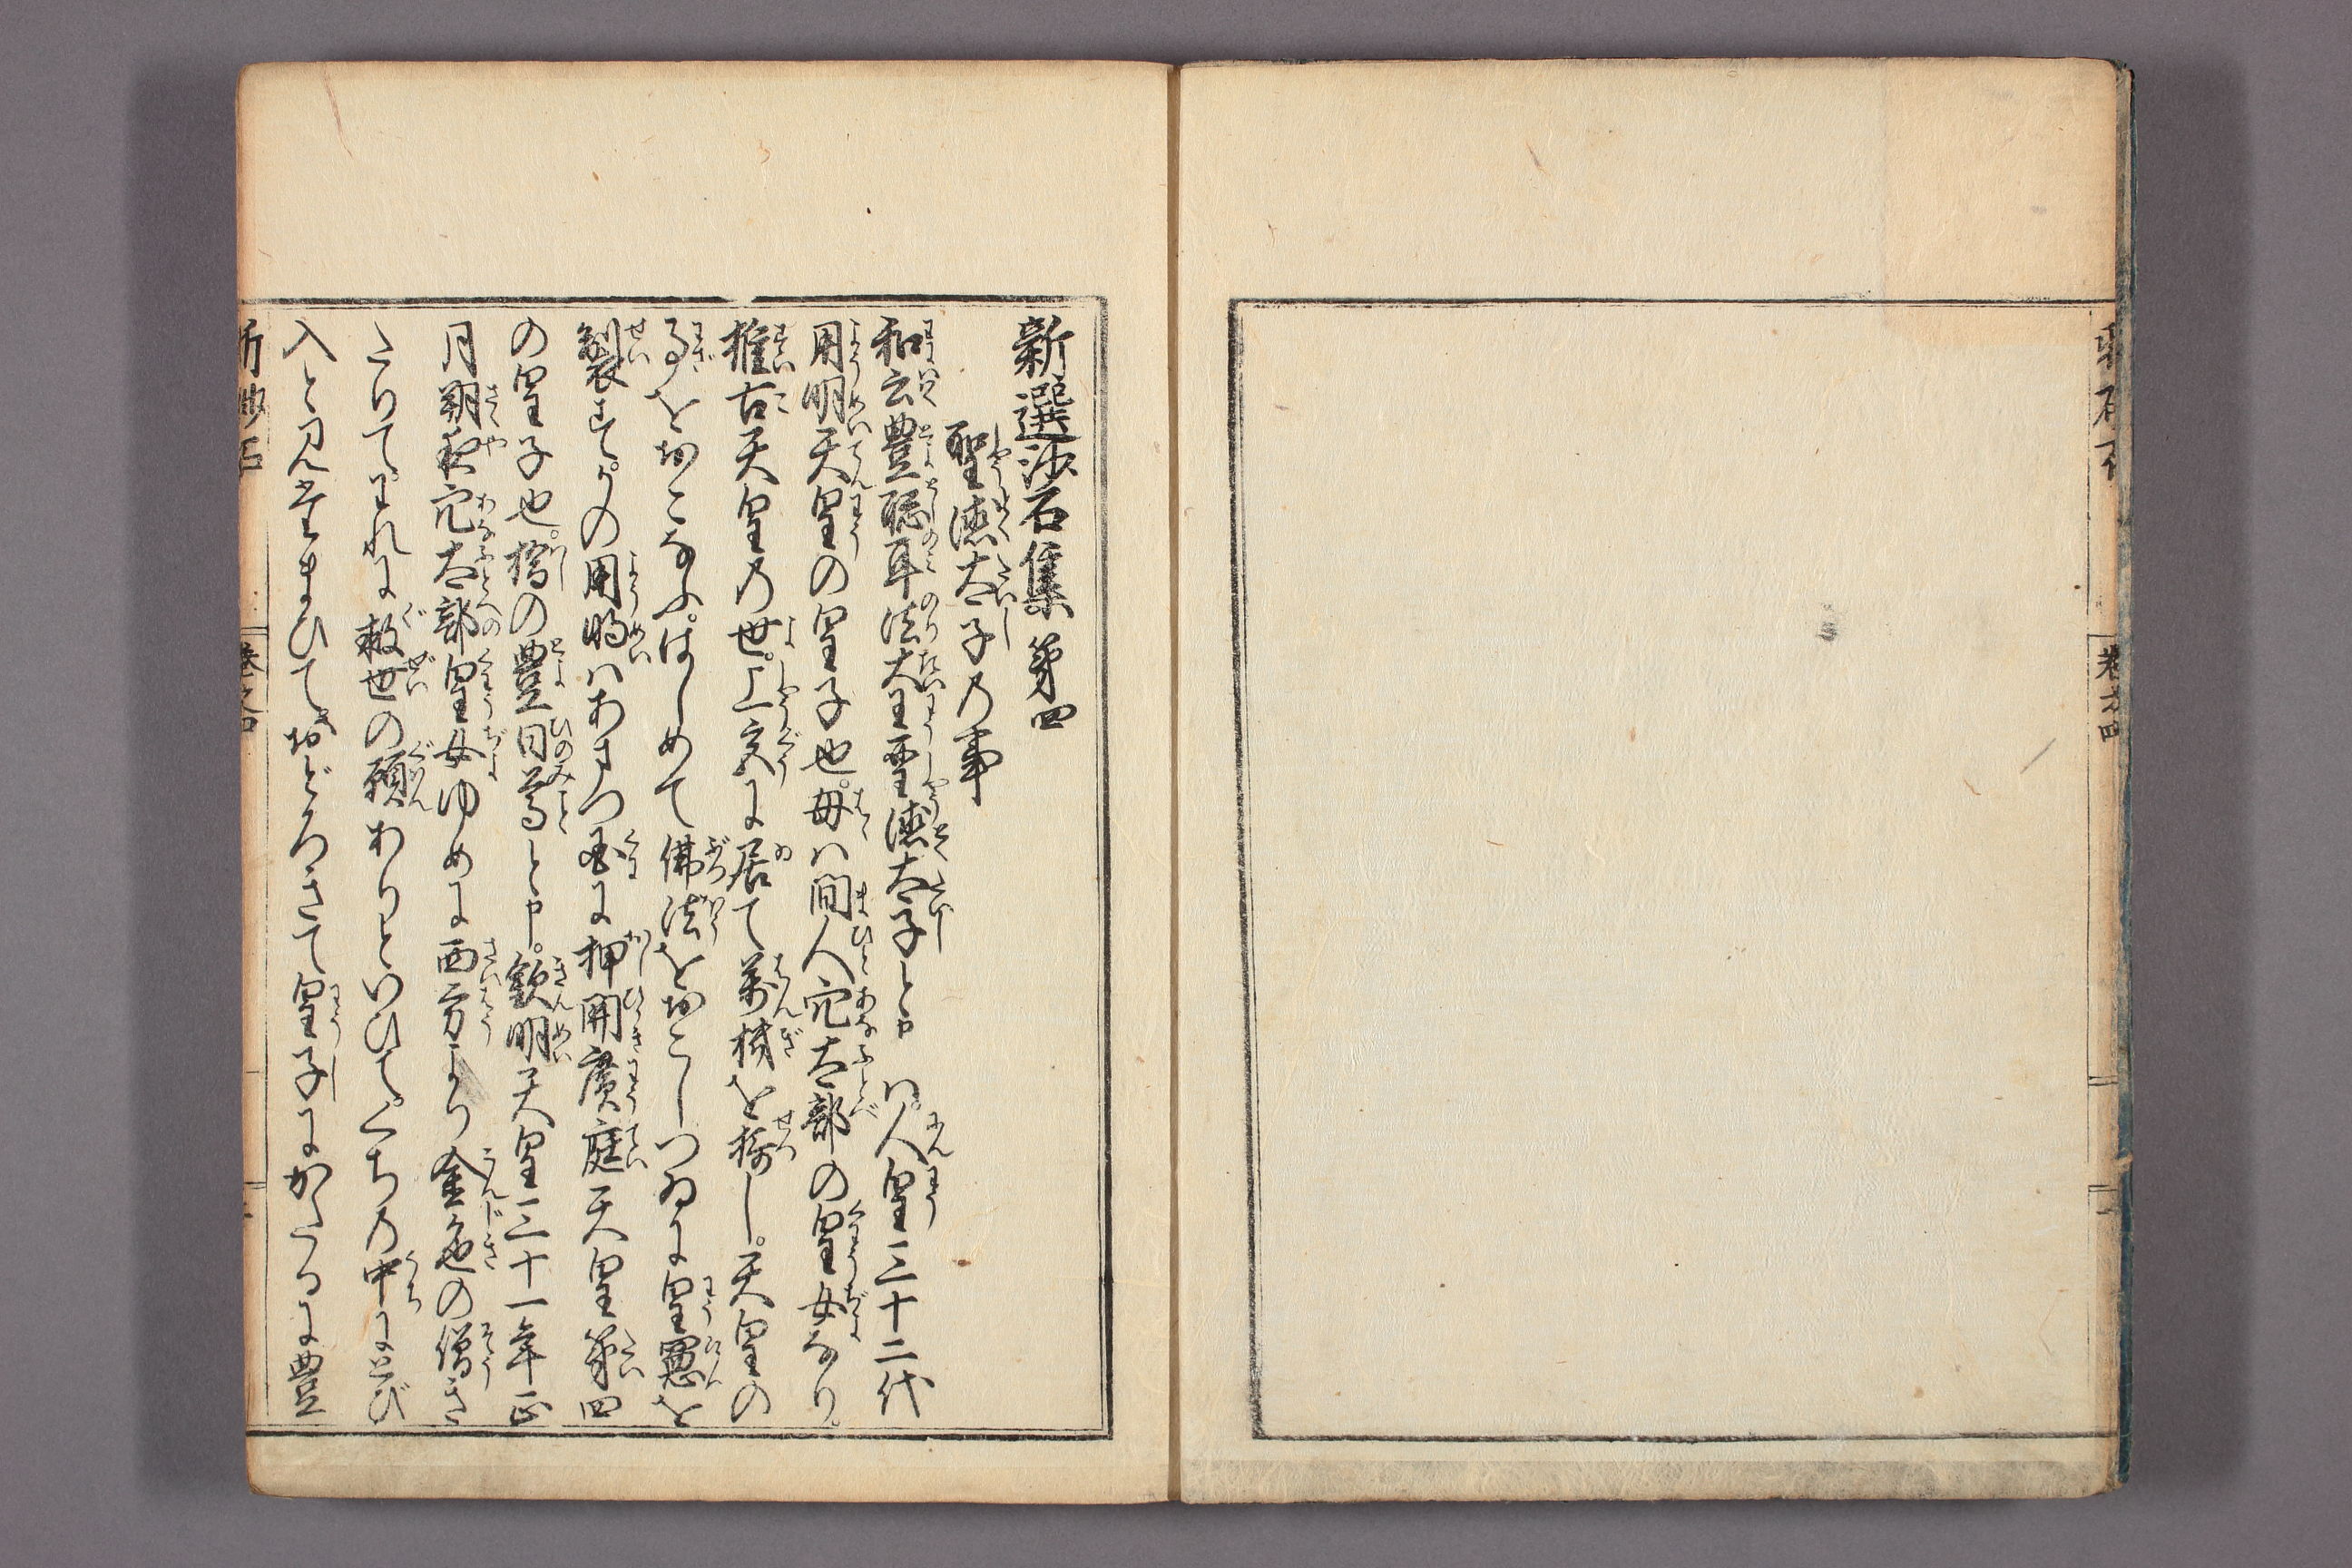 新選沙石集 第四
聖徳太子乃事
和云豊聡耳法大王聖徳太子と申ハ。人皇三十二代
用明天皇の皇子也。母ハ間人穴太部の皇女なり。
推古天皇乃世。上宮に居て萬機を摂し。天皇の
わざをおこなふ。はじめて佛法をおこしつゐに皇憲を
製す。かの用明ハあまつ国に押開廣庭天皇第四
の皇子也。橘の豊日尊と申。欽明天皇三十一年正
月朔夜穴太部皇女ゆめに西方より金色の僧き
たりて。われに救世の願ありといひて。くち乃中にとび
入と見たまひて。おどろきて皇子にかたるに豊
新沙石 巻之四
巻之四